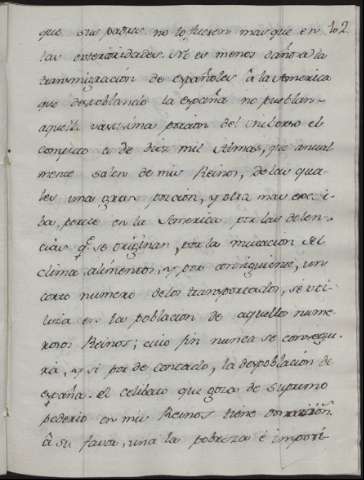 que sus padres no lo fuesen mas que en 102
las exterioridades. No es menos dañosa la
transmigración de españoles â la America
que despoblando la españa no pueblan
aquella vastisima porcion del universo el
computo es de diez mil Almas, que anual
mente salen de mis Reinos, de las qua-
les una gran porción, y otra mas
perece en la America por las dolen-
cias q.e se originan, por la mutacion del
clima, alimentos, y por consiguiente, un
corto numero de los transportados, se uti-
liza en la poblacion de aquellos nume-
rosos Reinos; cuio fin nunca se consegui-
rá, y si por de contado, la despoblación de
españa. el celibato que goza de supremo
poderio en mis Reinos tiene
â su favor, una la pobreza é imposi-